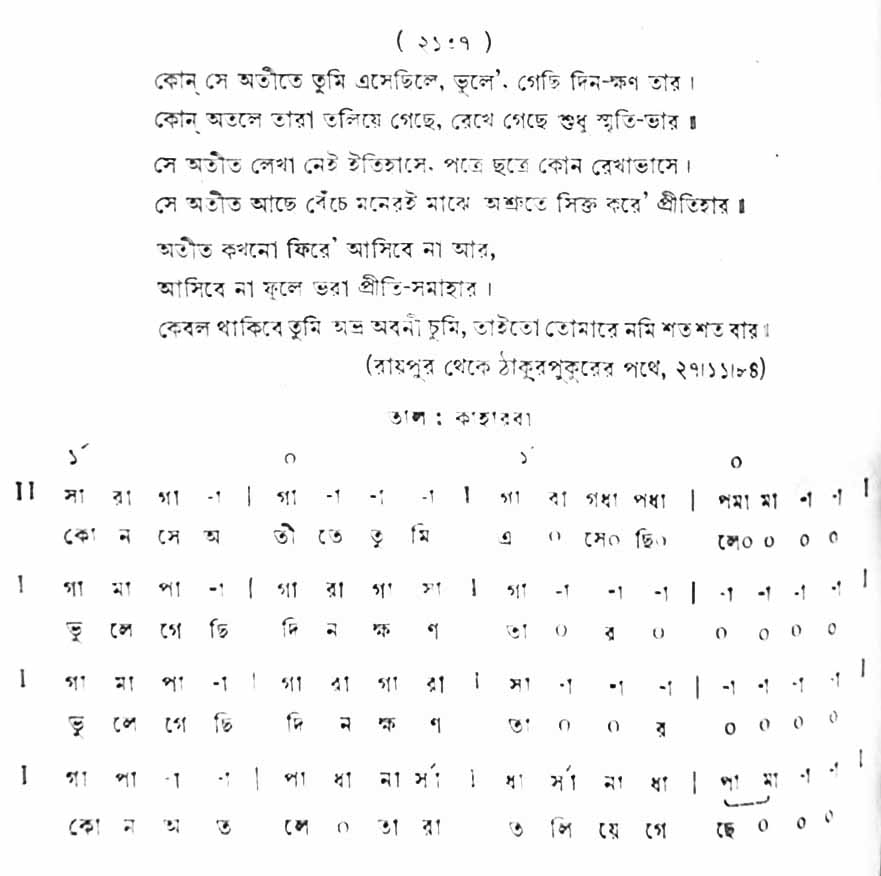 ( ২১৫৭ )
কোন্ সে অতীতে তুমি এসেছিলে, ভুলে' গেছি দিন-ক্ষণ তার ।
কোন্ অতলে তারা তলিয়ে গেছে, রেখে গেছে শুধু স্মৃতি-ভার ॥
সে অতীত লেখা নেই ইতিহাসে, পত্রে ছত্রে কোন রেখাভাসে ।
সে অতীত আছে বেঁচে মনেরই মাঝে অশ্রুতে সিক্ত করে' প্রীতিহার ॥
অতীত কখনো ফিরে' আসিবে না আর,
আসিবে না ফুলে ভরা প্রীতি-সমাহার ।
কেবল থাকিবে তুমি অভ্র অবনী চুমি, তাইতো তোমারে নমি শত শত বার ॥
(রায়পুর থেকে ঠাকুরপুকুরের পথে, ২৭।১১।৮৪)
তাল : কাহারবা
১´ ০ ১´ ০
II সা রা গা -া | গা -া -া -া I গা রা গধা পধা | পমা মা -া -া I
কো ন সে অ তী তে তু মি এ ০ সে০ ছি০ লে০ ০ ০ ০
I গা মা পা -া | গা রা গা সা I গা -া -া -া | -া -া -া -া I
ভু লে গে ছি দি ন ক্ষ ণ তা ০ র ০ ০ ০ ০ ০
I গা মা পা -া | গা রা গা রা I সা -া -া -া | -া -া -া -া I
ভু লে গে ছি দি ন ক্ষ ণ তা ০ ০ র ০ ০ ০ ০
I গা পা -া -া | পা ধা না র্সা I ধা র্সা না ধা | পা মা -া -া I
কো ন অ ত লে ০ তা রা ত লি য়ে গে ছে ০ ০ ০